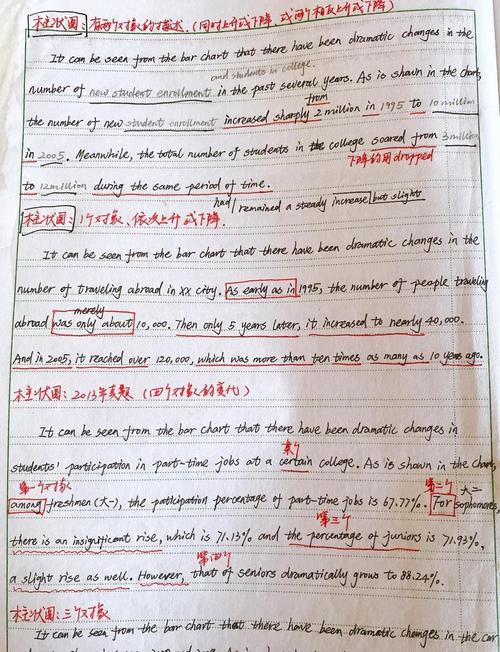 柱状图:有两个对象的描述.(同时上升或下降 或两个相反上升或下降)
It can be seen from the bar chart that there have been dramatic changes in the
and students in college.
number of new student enrollment in the past several years. As is shown in the chart,
from
the number of new student enrollment increased sharply 2 million in 1995 to 10 million
in 2005. Meanwhile, the total number of students in the college soared from 3 million
下降的用 dropped
to 12 million during the same period of time.
had / remained a steady increase but slight
柱状图:1个对象、依次上升或下降.
It can be seen from the bar chart that there have been dramatic changes in the
number of traveling abroad in xx city. As early as in 1995, the number of people traveling
merely
abroad was only about 10,000. Then only 5 years later, it increased to nearly 40,000.
And in 2005, it reached over 120,000, which was more than ten times as many as 10 years ago.
柱状图:2013年真题 (四个对象的变化)
It can be seen from the bar chart that there have been dramatic changes in
某个
students' participation in part-time jobs at a certain college. As is shown in the chart,
第一个对象 第二个 大二
among freshmen (大一), the paticipation percentage of part-time jobs is 67.77%. For sophomores,
第三个
there is an insignificant rise, which is 71.13% and the percentage of juniors is 71.93%,
第四个
a slight rise as well. However, that of seniors dramatically grows to 88.24%.
柱状图:三个对象
It can be seen from the bar chart that there have been dramatic changes in the car